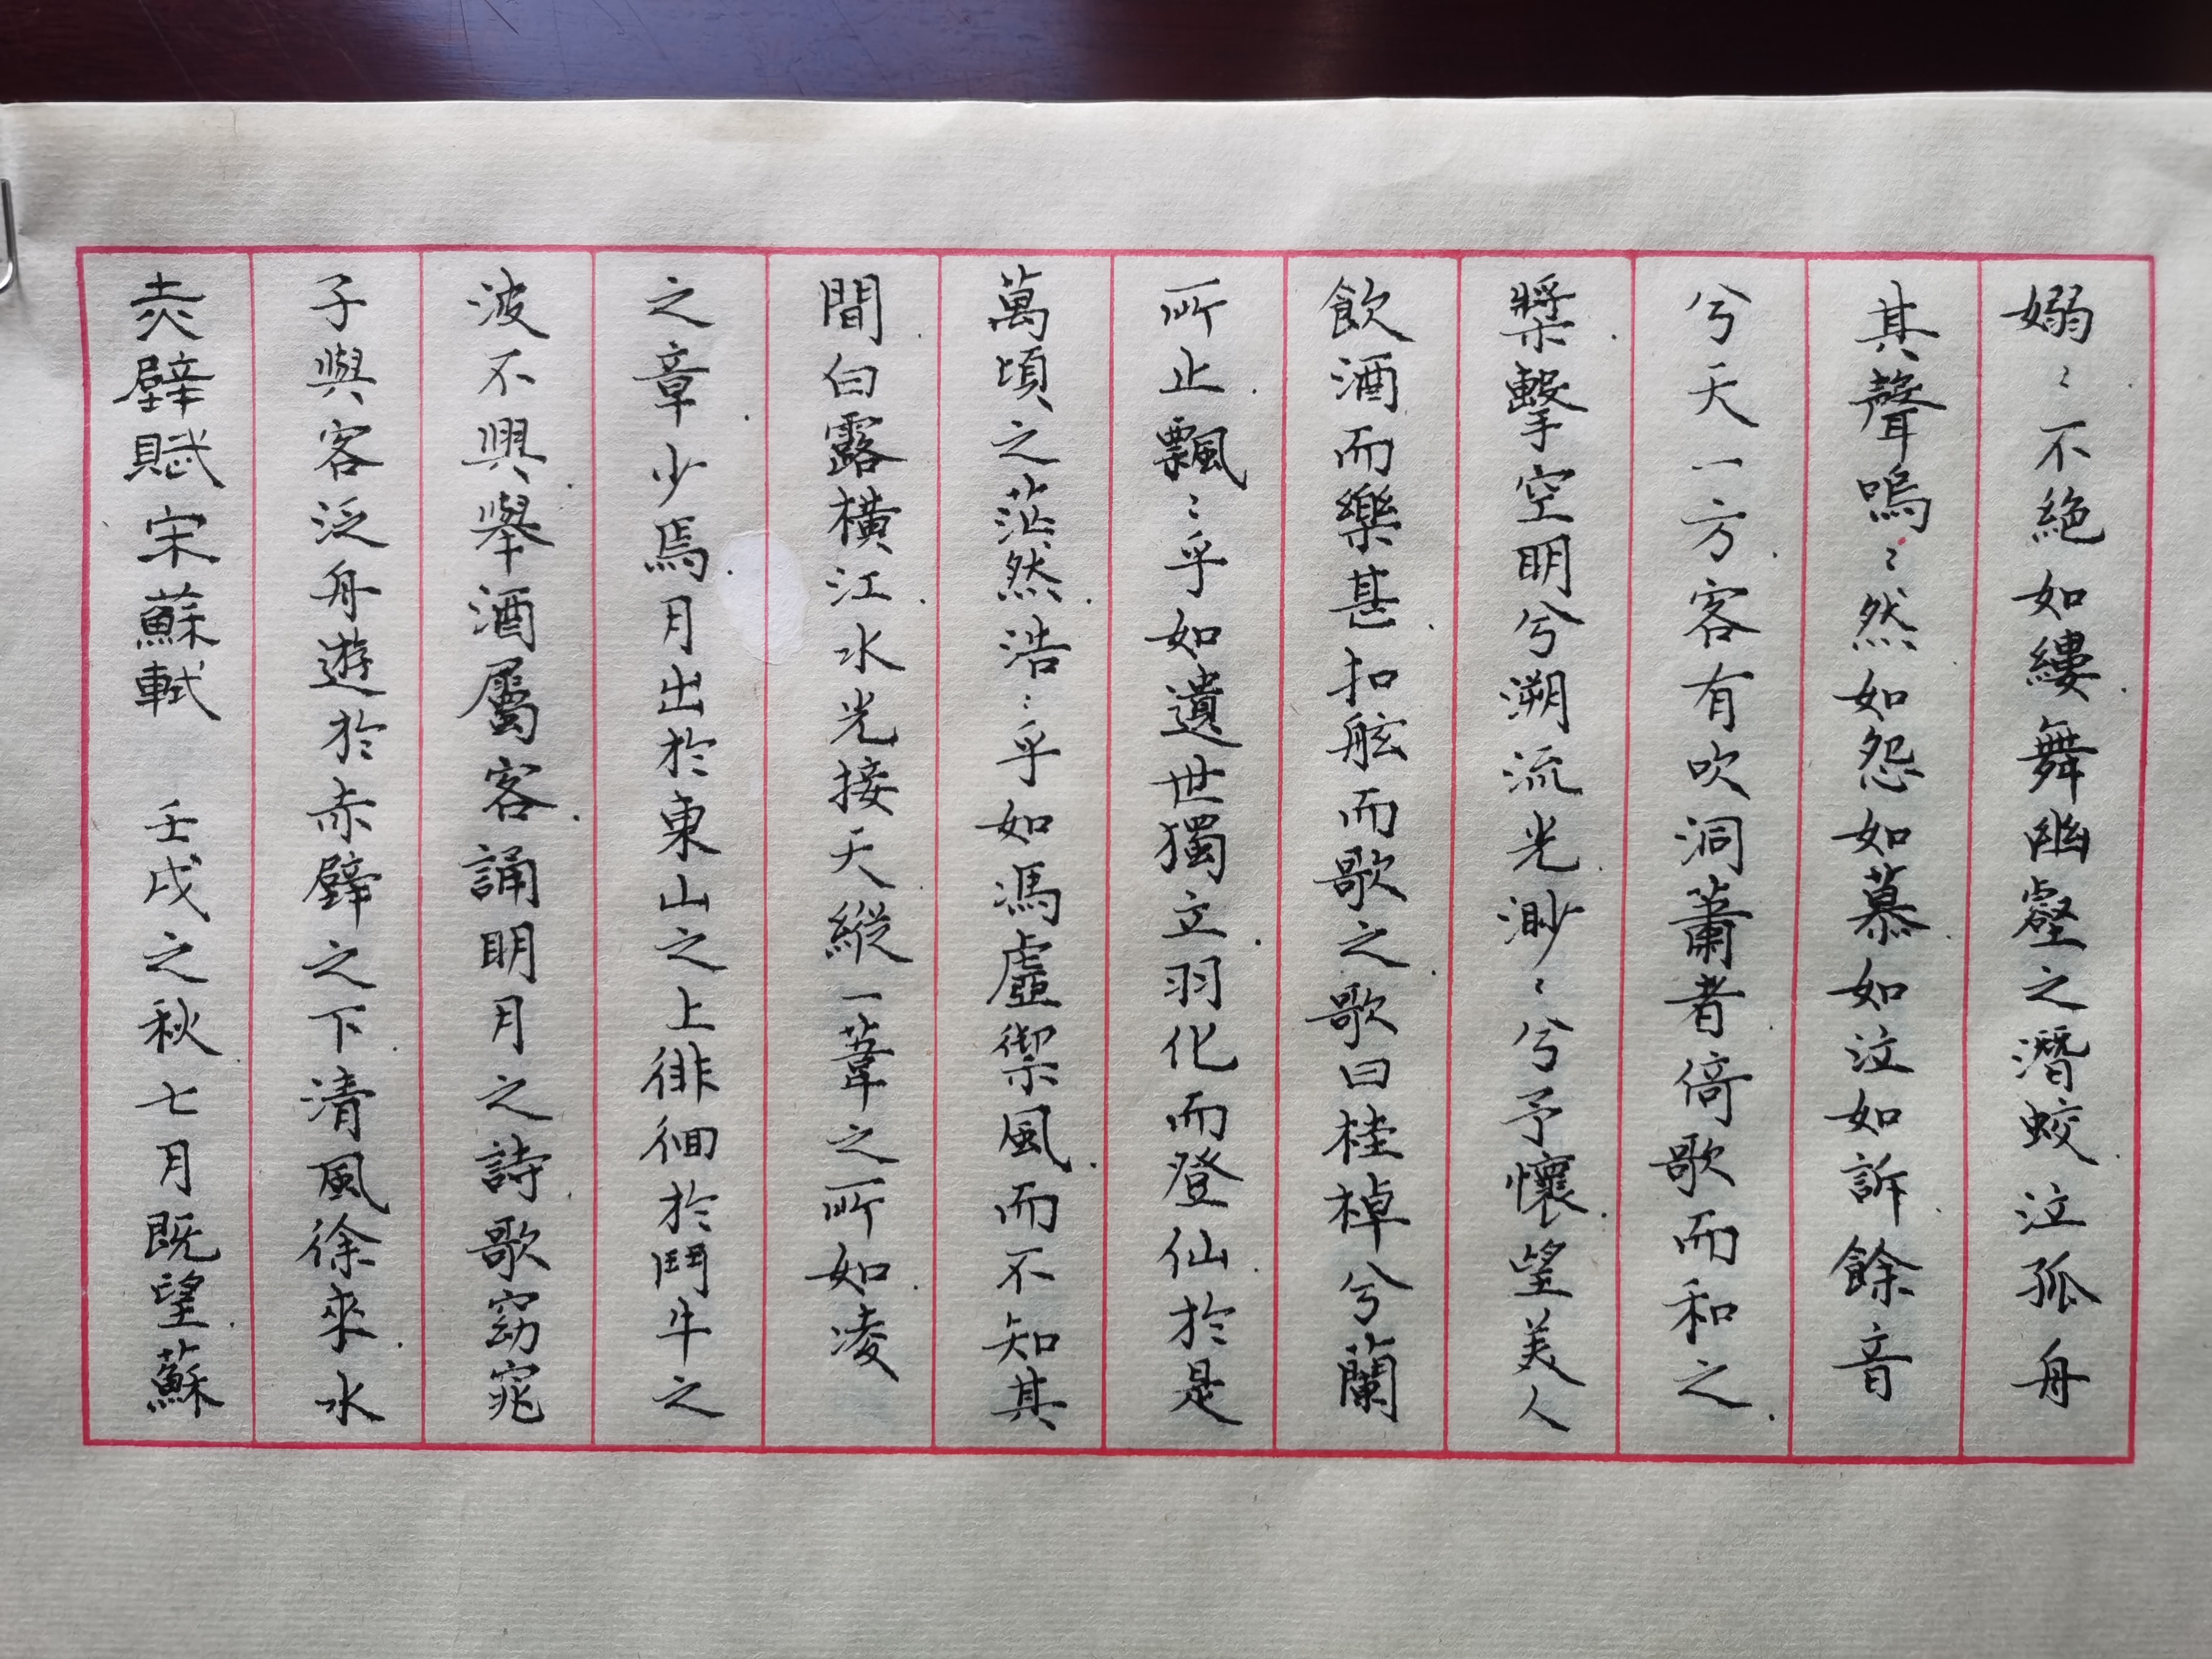 赤壁賦 宋蘇軾 壬戌之秋七月既望蘇
子與客泛舟遊於赤壁之下清風徐來水
波不興舉酒屬客誦明月之詩歌窈窕
之章少焉月出於東山之上徘徊於鬥牛之
間白露橫江水光接天縱一葦之所如凌
萬頃之茫然浩〻乎如馮虛禦風而不知其
所止飄〻乎如遺世獨立羽化而登仙於是
飲酒而樂甚扣舷而歌之歌曰桂棹兮蘭
槳擊空明兮溯流光渺〻兮予懷望美人
兮天一方客有吹洞蕭者倚歌而和之
其聲嗚〻然如怨如慕如泣如訴餘音
嫋〻不絕如縷舞幽壑之潛蛟泣孤舟